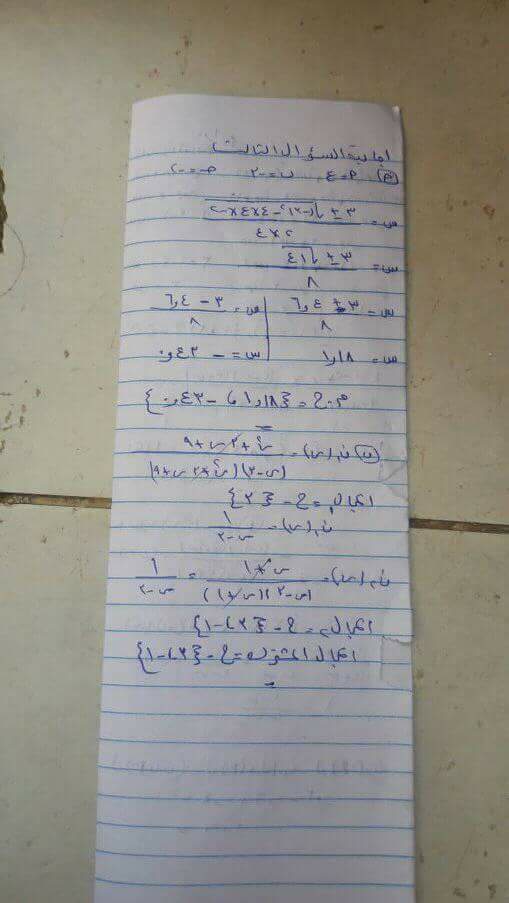 اجابة السؤال الثالث
(أ) أ = ٤ ب = -٣ ج = -٢
س = (٣ ± √((-٣)² - ٤×٤×-٢)) / (٢×٤)
س = (٣ ± √٤١) / ٨
س = (٣ + ٦,٤) / ٨ | س = (٣ - ٦,٤) / ٨
س = ١,١٨ | س = -٠,٤٣
م.ح = {١,١٨ ، -٠,٤٣}
(ب) ن١(س) = (س² + ٣س + ٩) / ((س-٣)(س² + ٣س + ٩))
المجال١ = ح - {٣}
ن١(س) = ١ / (س-٣)
ن٢(س) = (س+١) / ((س-٣)(س+١)) = ١ / (س-٣)
المجال٢ = ح - {٣، -١}
المجال المشترك = ح - {٣، -١}